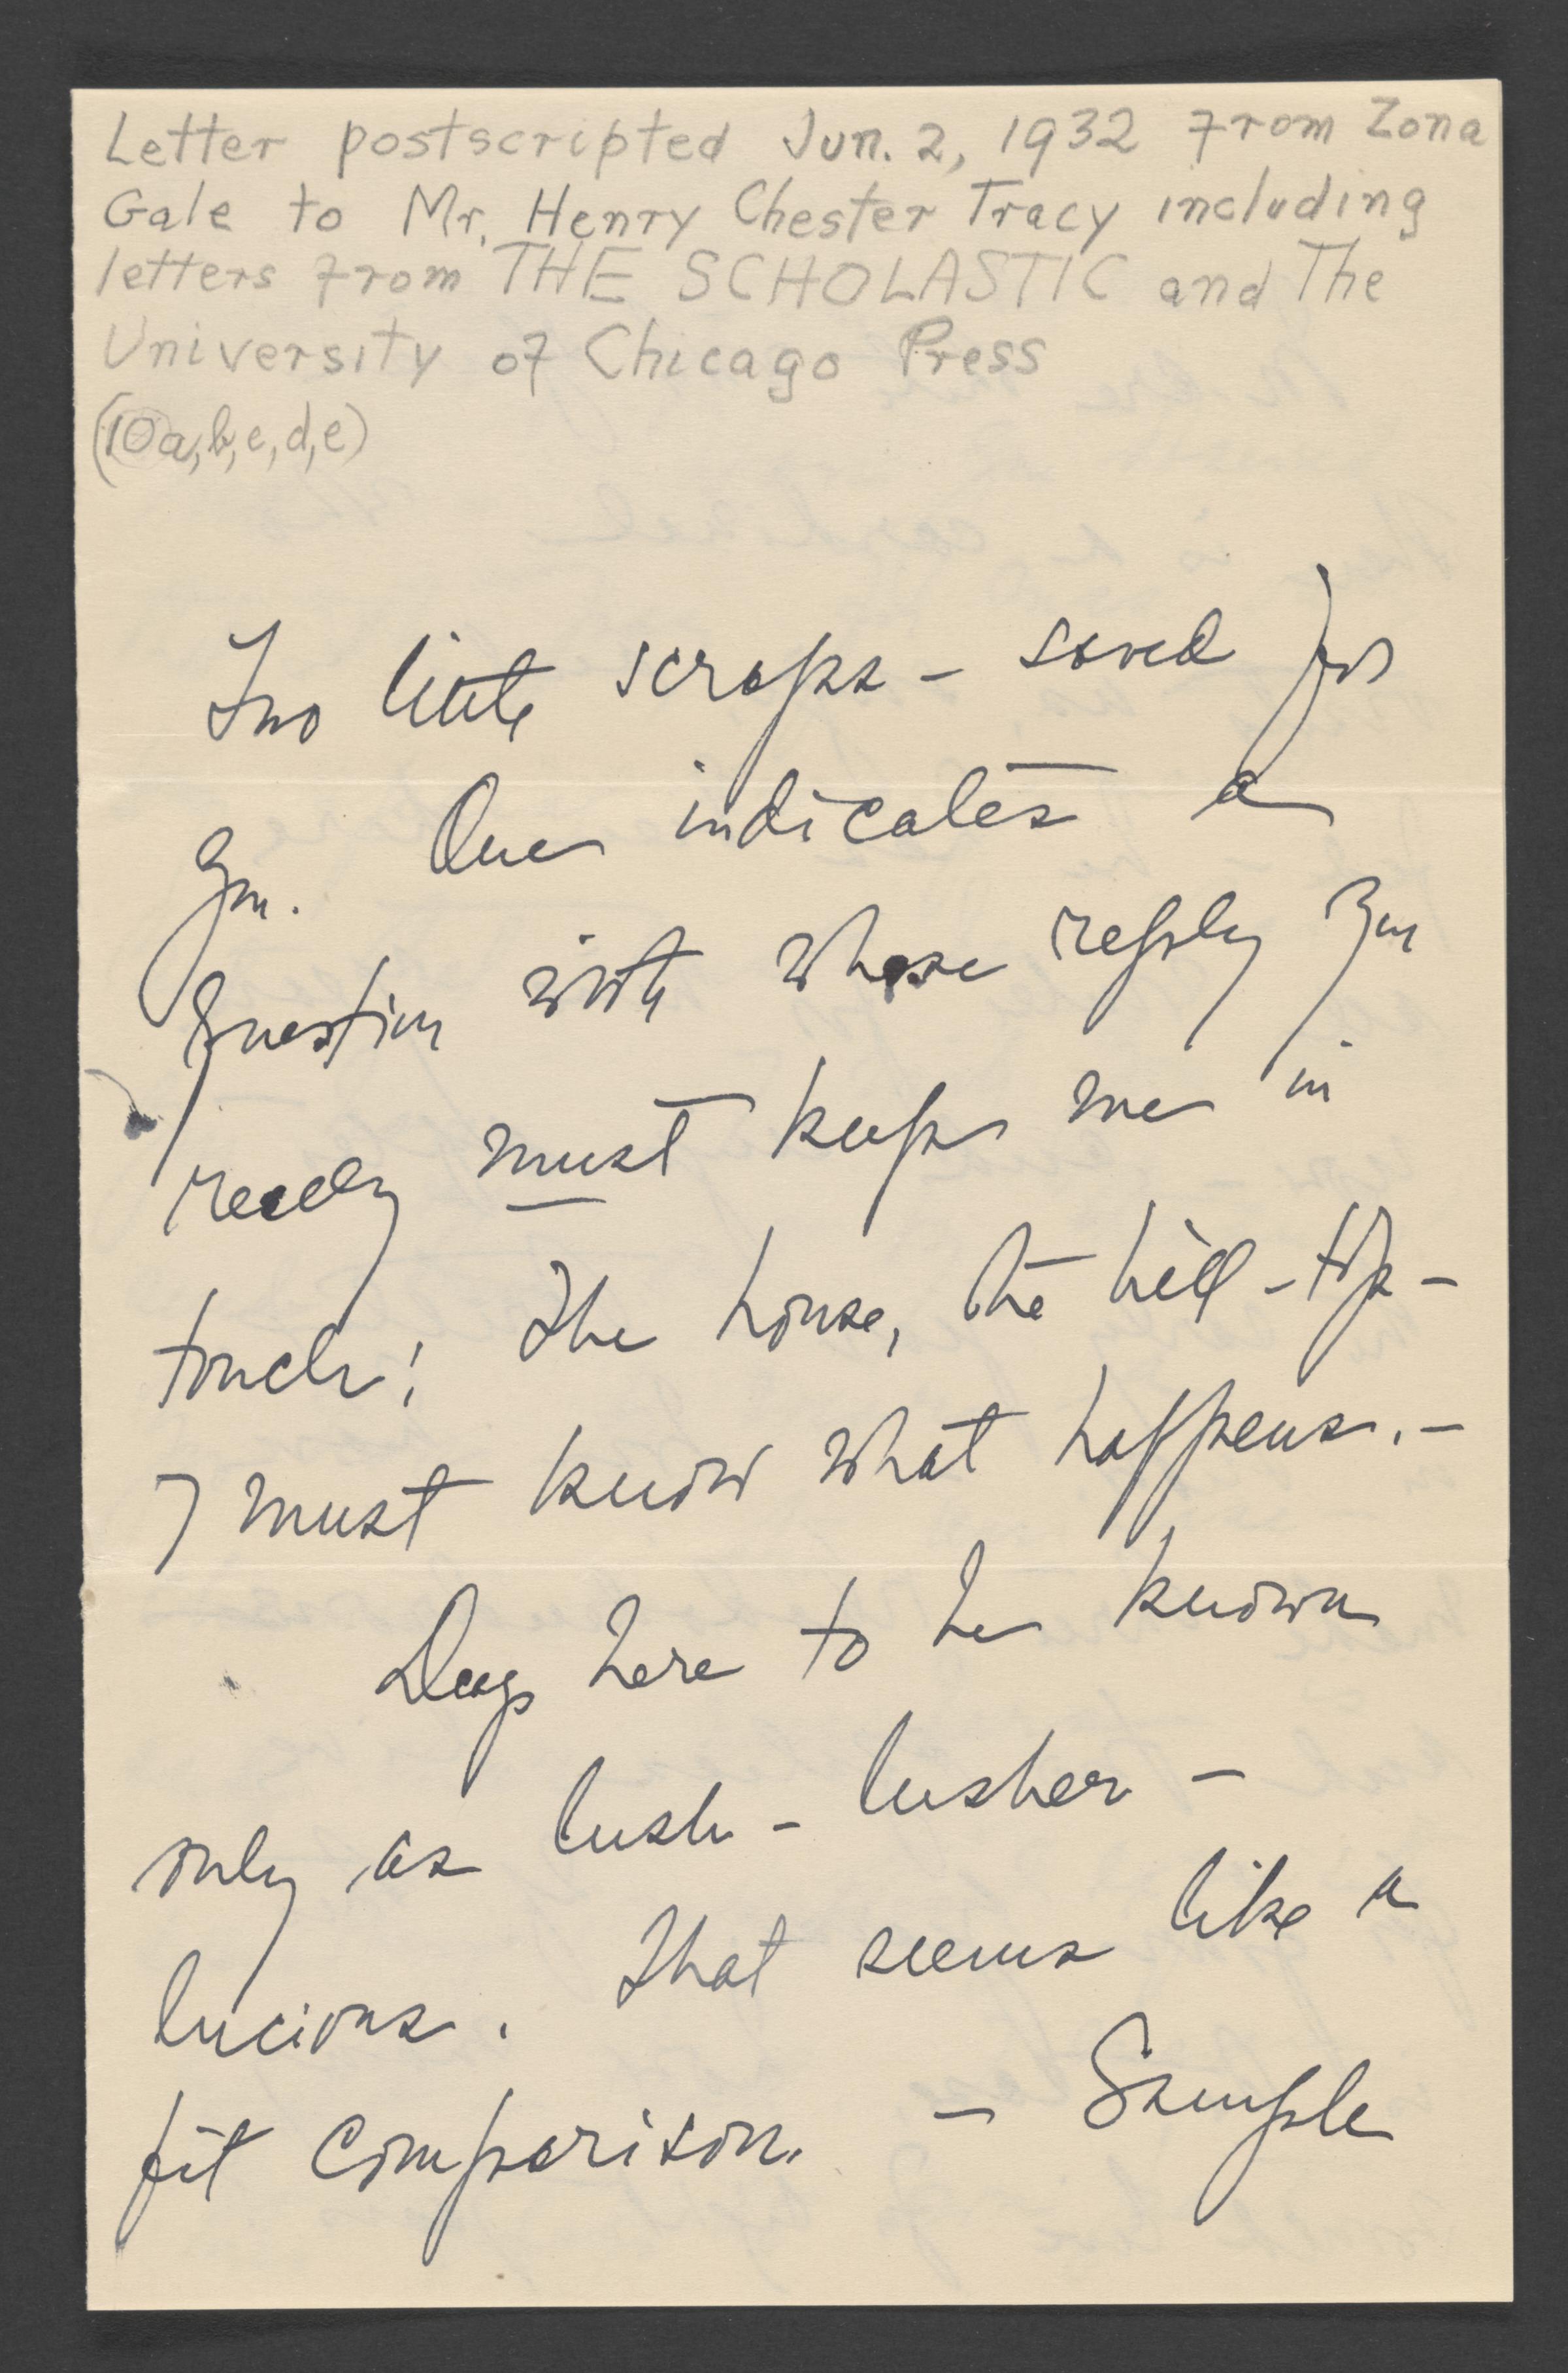 Letter postscripted Jun. 2, 1932 from Zona
Gale to Mr. Henry Chester Tracy including
letters from THE SCHOLASTIC and The
University of Chicago Press
(10a,b,c,d,e)
Two little scraps – saved for
you. One indicates a
question with whose reply you
really must keep me in
touch! The house, the hill-top –
I must know what happens. –
Days here to be known
only as lush – lusher –
lucious. That seems like a
fit comparison. – Sample